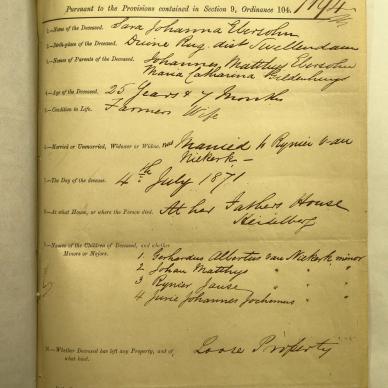 Pursuant to the Provisions contained in Section 9, Ordinance 104.
1.—Name of the Deceased. Sara Johanna Ebersohn
2.—Birth-place of the Deceased. Duine Rug, dist Swellendam
3.—Names of Parents of the Deceased. Johannes Matthys Ebersohn
Maria Catharina
4.—Age of the Deceased. 25 Years & 7 Months
5.—Condition in Life. Farmers Wife
6.—Married or Unmarried, Widower or Widow. Married to Rynier van
Niekerk.—
7.—The Day of the decease. 4th July 1871
8.—At what House, or where the Person died. At her Fathers House
Heidelberg
9.—Names of the Children of Deceased, and whether
Minors or Majors.
1. Gerhardus Albertus van Niekerk, minor
2 Johan Matthys " "
3 Rynier " "
4 Jurie Johannes Jochemus " "
10.—Whether Deceased has left any Property, and of
what kind. Loose Property